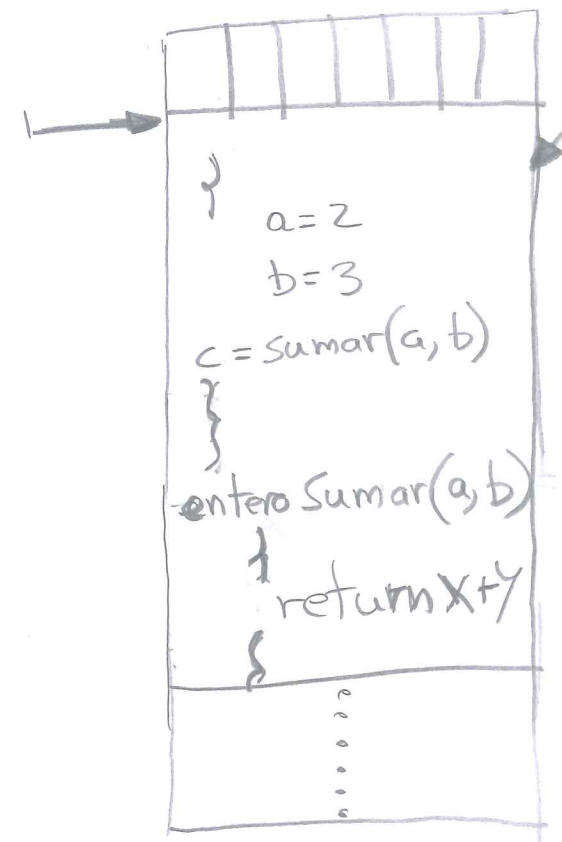 }
a=2
b=3
c=sumar(a,b)
}
}
entero Sumar(a,b)
{
return X+Y
}